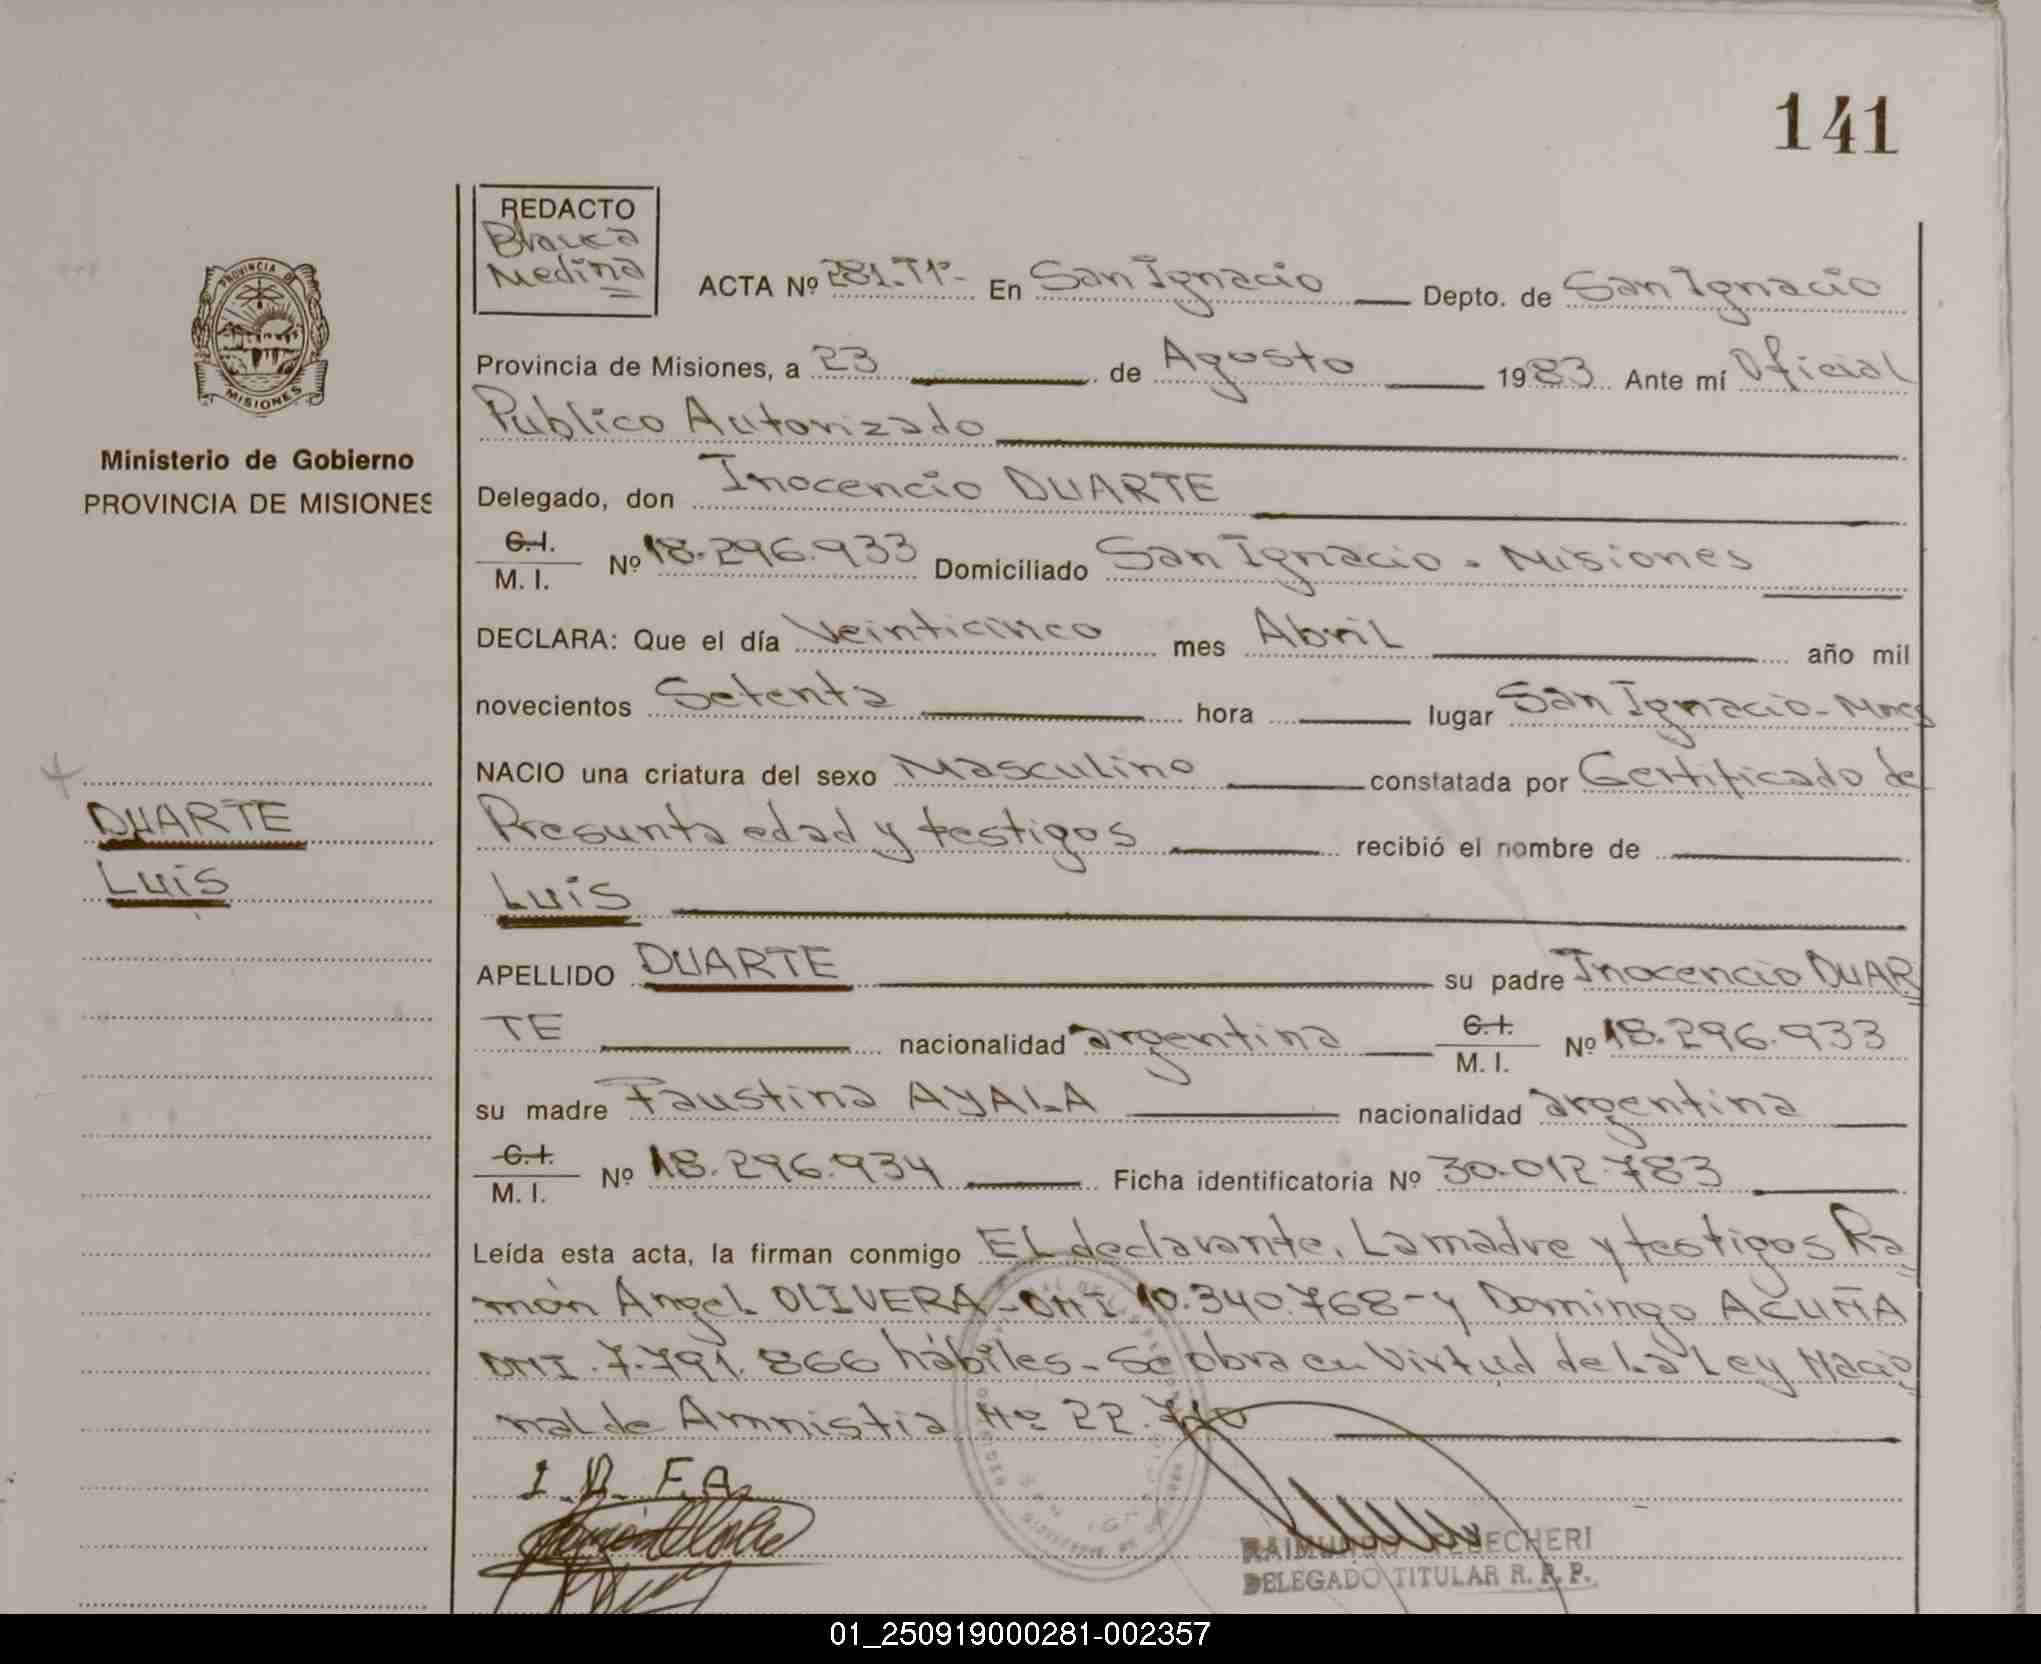 141
REDACTO
Blanca
Medina
ACTA Nº 281.Tº- En San Ignacio Depto. de San Ignacio
Provincia de Misiones, a 23 de Agosto 1983 Ante mí Oficial
Publico Autorizado
Delegado, don Inocencio DUARTE
C.I.
M.I. Nº 18.296.933 Domiciliado San Ignacio - Misiones
DECLARA: Que el día Veinticinco mes Abril año mil
novecientos Setenta hora lugar San Ignacio-Mnes
NACIO una criatura del sexo Masculino constatada por Certificado de
Presunta edad y testigos recibió el nombre de
Luis
APELLIDO DUARTE su padre Inocencio DUAR
TE nacionalidad argentina C.I.
M.I. Nº 18.296.933
su madre Faustina AYALA nacionalidad argentina
C.I.
M.I. Nº 18.296.934 Ficha identificatoria Nº 30.012.783
Leída esta acta, la firman conmigo El declarante, La madre y testigos Ra
món Angel OLIVERA-DNI 10.340.768-y Domingo ACUÑA
DNI.7.791.866 hábiles-Se obra en Virtud de La Ley Nacio
nal de Amnistia Nº 22.
I.D. F.A.
RAIMUNDO
DELEGADO TITULAR R. P. P.
PROVINCIA DE
MISIONES
Ministerio de Gobierno
PROVINCIA DE MISIONES
DUARTE
Luis
01_250919000281-002357